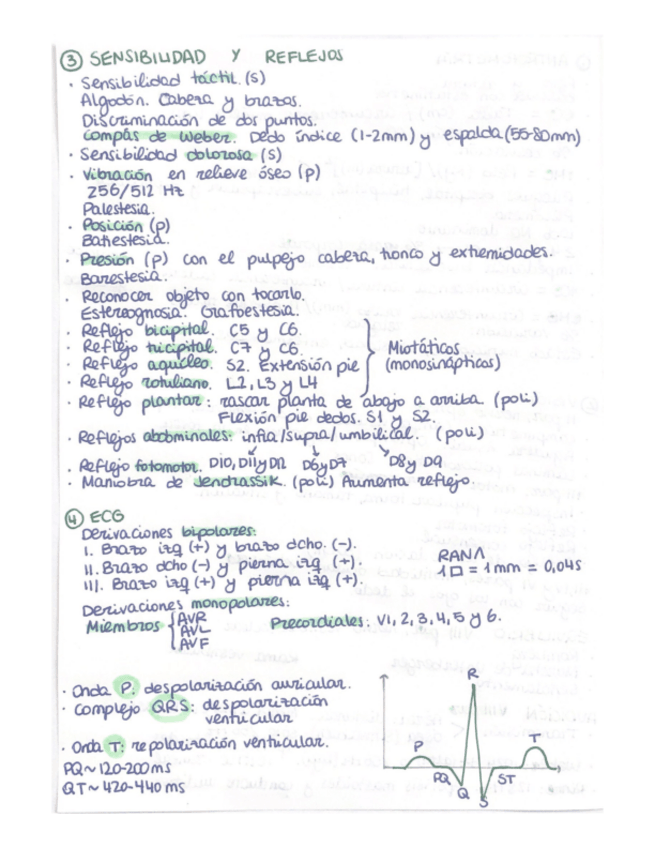 ③ SENSIBILIDAD Y REFLEJOS
· Sensibilidad táctil. (s)
Algodón. Cabeza y brazos.
Discriminación de dos puntos.
Compás de Weber. Dedo índice (1-2mm) y espalda (55-80mm)
· Sensibilidad dolorosa (s)
· Vibración en relieve óseo (p)
256/512 Hz
Palestesia.
· Posición (p)
Batiestesia.
· Presión (p) con el pulpejo cabeza, tronco y extremidades.
Barestesia.
· Reconocer objeto con tocarlo.
Estereognosia. Grafoestesia.
· Reflejo bicipital. C5 y C6.
· Reflejo tricipital. C7 y C6.
· Reflejo aquíleo. S2. Extensión pie
· Reflejo rotuliano. L2, L3 y L4
Miotáticos
(monosinápticos)
· Reflejo plantar: rascar planta de abajo a arriba. (poli)
Flexión pie dedos. S1 y S2.
· Reflejos abdominales: infra/supra/umbilical. (poli)
D10, D11 y D12 D6 y D7 D8 y D9
· Reflejo fotomotor.
· Maniobra de Jendrassik. (poli) Aumenta reflejo.
④ ECG
Derivaciones bipolares:
I. Brazo izq (+) y brazo dcho. (-).
II. Brazo dcho (-) y pierna izq (+).
III. Brazo izq (+) y pierna izq (+).
RANA
1□ = 1mm = 0,04s
Derivaciones monopolares:
Miembros { AVR
AVL
AVF
Precordiales: V1, 2, 3, 4, 5 y 6.
· Onda P: despolarización auricular.
· Complejo QRS: despolarización
ventricular
· Onda T: repolarización ventricular.
PQ ~ 120-200 ms
QT ~ 420-440 ms
R
P
T
PQ
Q
S
ST